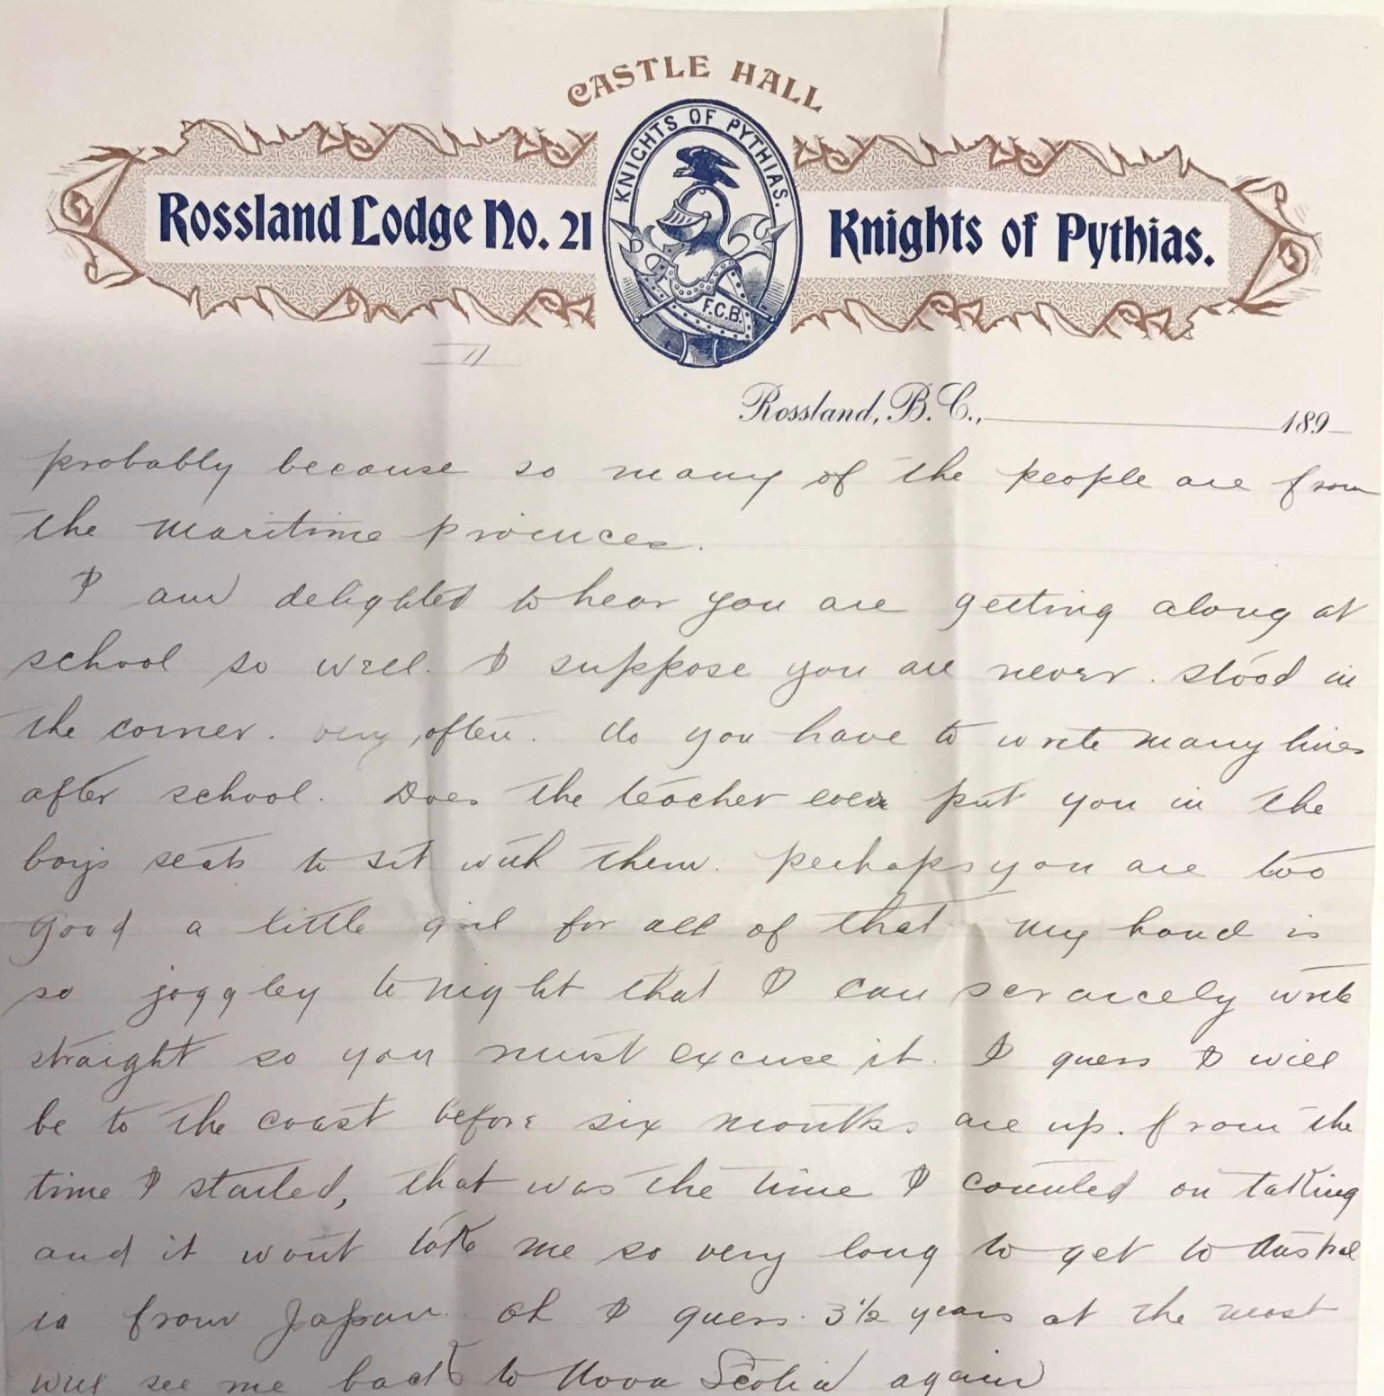 CASTLE HALL
KNIGHTS OF PYTHIAS.
Rossland Lodge No. 21 Knights of Pythias.
F.C.B.
II
Rossland, B.C., 189
probably because so many of the people are from
the maritime provinces.
I am delighted to hear you are getting along at
school so well. I suppose you are never stood in
the corner. very often. do you have to write many lines
after school. Does the teacher ever put you in the
boys seats to sit with them. perhaps you are too
good a little girl for all of that my hand is
so joggley to night that I can scraicely write
straight so you must excuse it. I guess I will
be to the coast before six months are up. from the
time I started, that was the time I counted on taking
and it wont take me so very long to get to Austral
ia from Japan. Oh I guess 3 1/2 years at the most
will see me back to Nova Scotia again